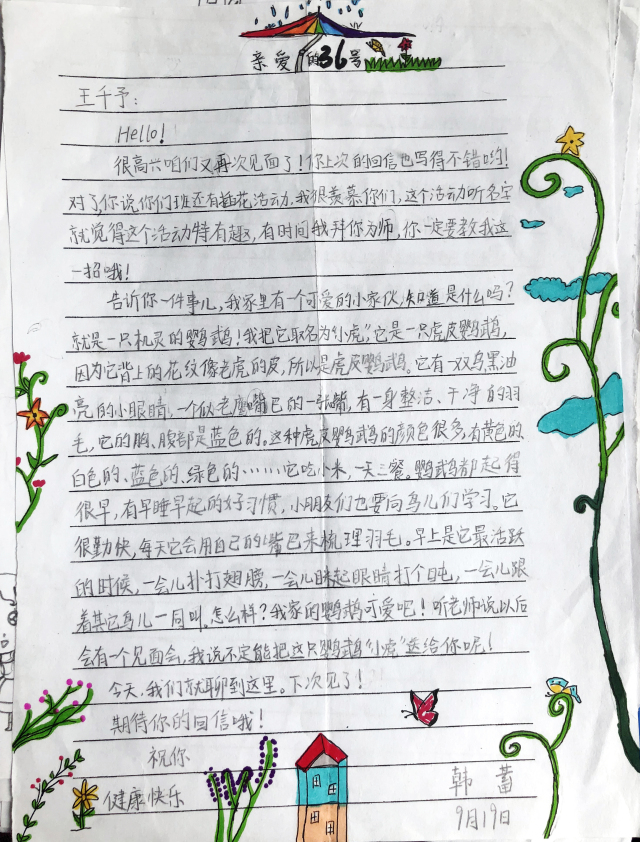 亲爱的36号
王千予:
Hello!
很高兴咱们又再次见面了!你上次的回信也写得不错哟!
对了你说你们班还有插花活动,我很羡慕你们,这个活动听名字
就觉得这个活动特有趣,有时间我拜你为师,你一定要教我这
一招哦!
告诉你一件事儿,我家里有一个可爱的小家伙,知道是什么吗?
就是一只机灵的鹦鹉!我把它取名为“小虎”它是一只虎皮鹦鹉,
因为它背上的花纹像老虎的皮,所以是虎皮鹦鹉。它有一双乌黑油
亮的小眼睛,一个似老鹰嘴巴的一张嘴,有一身整洁、干净的羽
毛,它的胸、腹部是蓝色的。这种虎皮鹦鹉的颜色很多,有黄色的、
白色的、蓝色的、绿色的……它吃小米,一天三餐。鹦鹉都起得
很早,有早睡早起的好习惯,小朋友们也要向鸟儿们学习。它
很勤快,每天它会用自己的嘴巴来梳理羽毛。早上是它最活跃
的时候,一会儿扑打翅膀,一会儿眯起眼睛打个盹,一会儿跟
着其它鸟儿一同叫。怎么样?我家的鹦鹉可爱吧!听老师说以后
会有一个见面会,我说不定能把这只鹦鹉“小虎”送给你呢!
今天,我们就聊到这里。下次见了!
期待你的回信哦!
祝你
健康快乐
韩蓄
9月19日